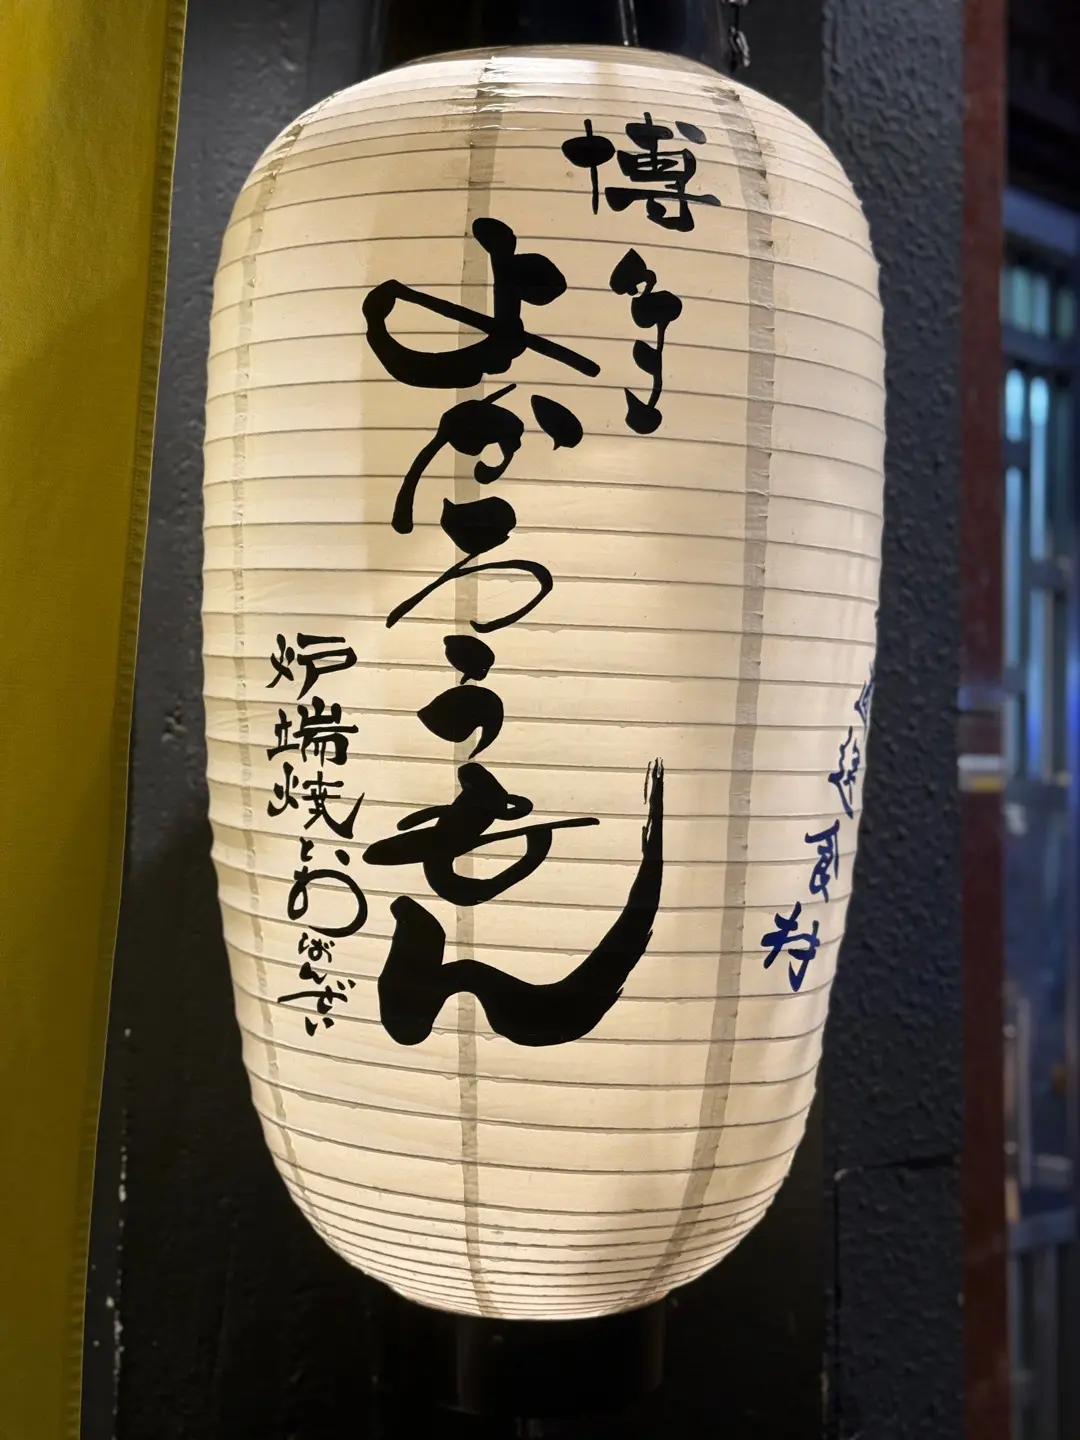 博多
よかろうもん
炉端焼とおばんざい